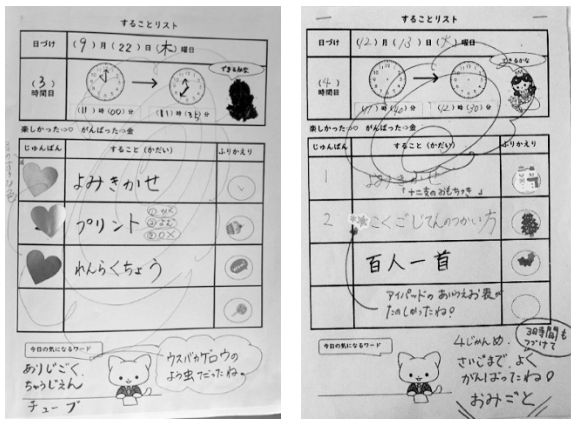 することリスト
日づけ
(9)月(22)日(木)曜日
(3)
時間目
できるかな
(11)時(00)分
楽しかった→○ がんばった→金
じゅんばん
すること(かだい)
ふりかえり
よみきかせ
プリント
れんらくちょう
今日の気になるワード
ありじごく
ちゅうじえん
チューブ
ウスバカゲロウの
よう虫だったね。
することリスト
日づけ
(12)月(13)日(火)曜日
(4)
時間目
できるかな
楽しかった→○ がんばった→金
じゅんばん
すること(かだい)
ふりかえり
1
よみきかせ
「十二支のおもちつき」
2
こくごじてんのつかい方
百人一首
アイパッドのあいうえお表が
たのしかったね!
今日の気になるワード
4じかんめ、
さいごまで、よく
がんばったね!
おみごと
3時間も
つづけて